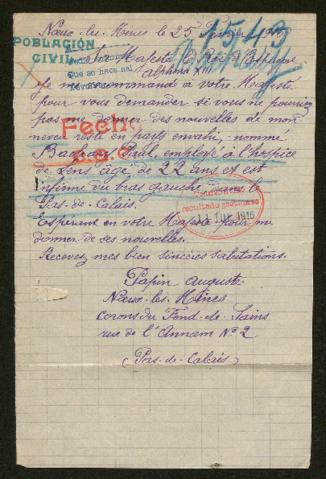 Nœux-les-Mines le 25
POBLACIÓN
CIVIL
Sa Majesté le Roi d'Espagne
que se hace mal
alfonso XIII
Je me recommande à votre Majesté
pour vous demander si vous ne pourriez
pas me donner des nouvelles de mon
neveu resté en pays envahi, nommé
Paul, employé à l'hospice
de Lens âgé de 22 ans et est
infirme du bras gauche, Lens le
Pas-de-Calais.
resultado
11 1916
Espérant en votre Majesté pour me
donner de ses nouvelles.
Recevez mes bien sincères salutations.
Papin Auguste
Nœux-les-Mines
corons du Fond-de-Sains
rue de l'Annam N° 2
(Pas-de-Calais)